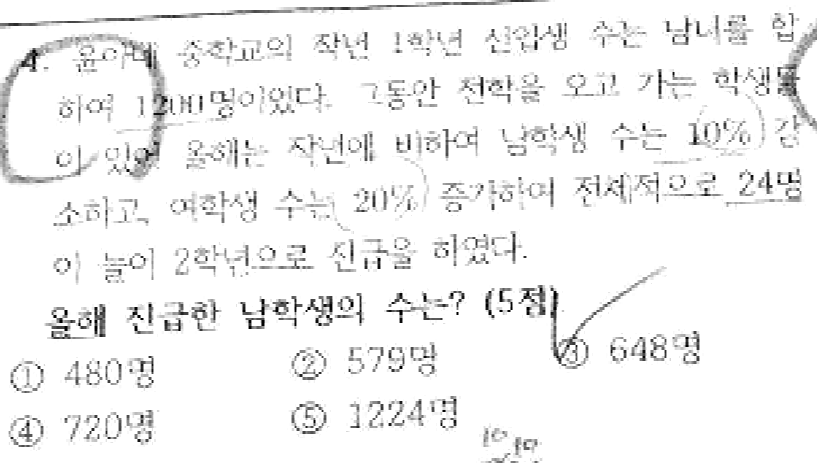 4. 윤아네 중학교의 작년 1학년 신입생 수는 남녀를 합
하여 1200명이었다. 그동안 전학을 오고 가는 학생들
이 있어 올해는 작년에 비하여 남학생 수는 10% 감
소하고, 여학생 수는 20% 증가하여 전체적으로 24명
이 늘어 2학년으로 진급을 하였다.
올해 진급한 남학생의 수는? (5점)
① 480명 ② 579명 ③ 648명
④ 720명 ⑤ 1224명
10 10